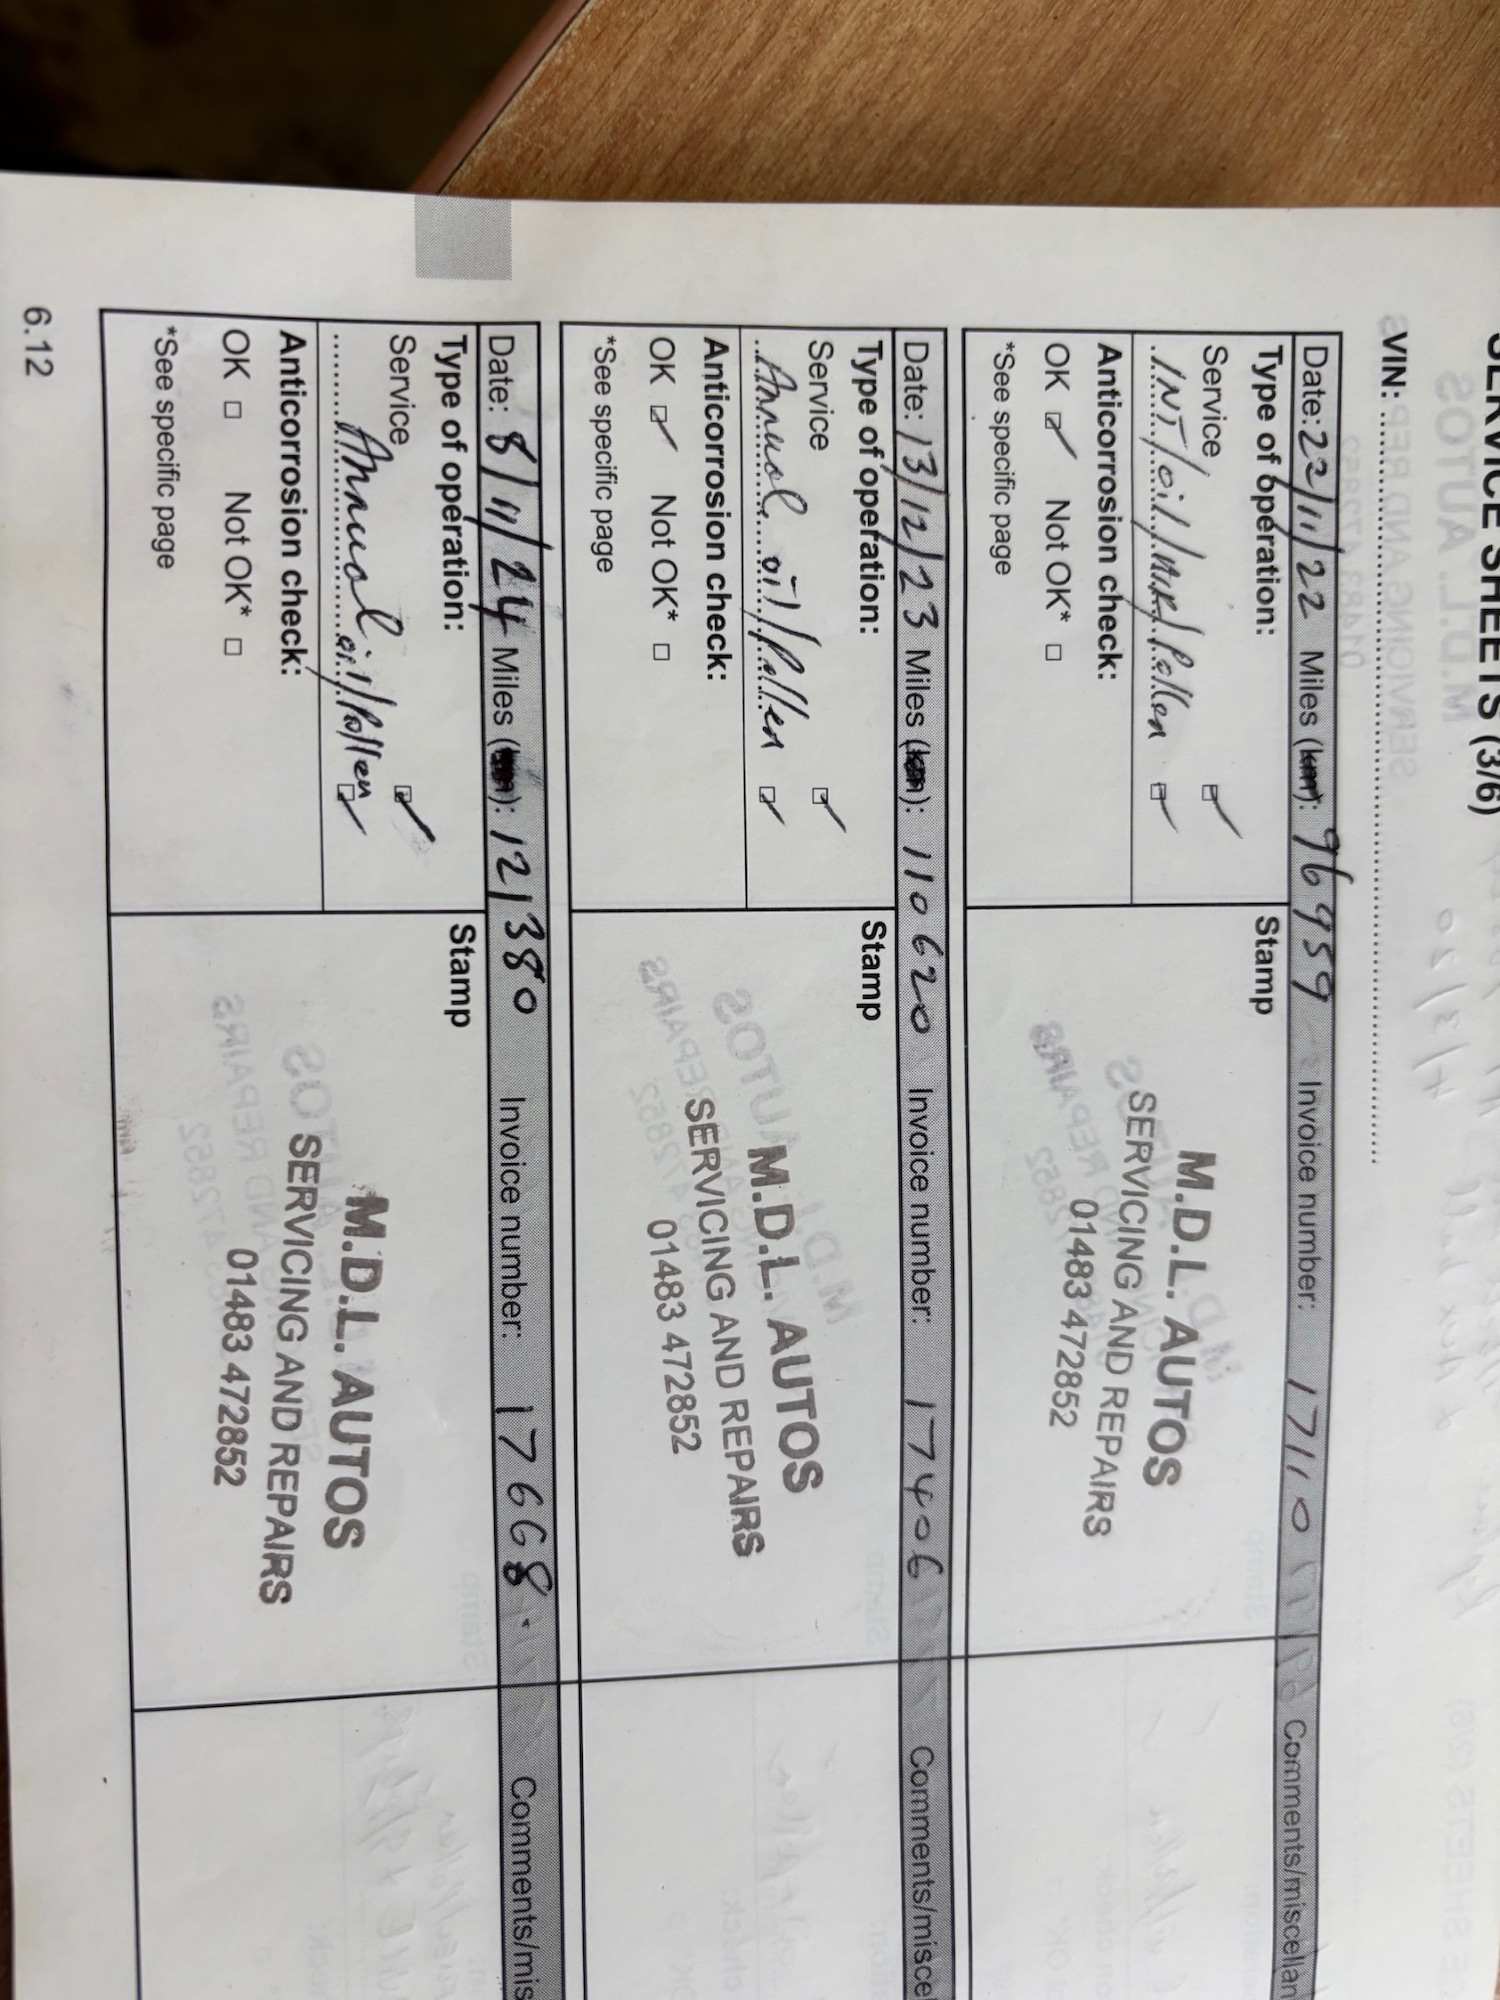 SERVICE SHEETS (3/6)
VIN: ..........................................................
Date: 22/11/22 Miles (km): 96959 Invoice number: 17110 Comments/miscellan
Type of operation:
Stamp
Service
INT/oil/AIR/Pollen
Anticorrosion check:
OK Not OK*
*See specific page
M.D.L. AUTOS
SERVICING AND REPAIRS
01483 472852
Date: 13/12/23 Miles (km): 110620 Invoice number: 17406 Comments/miscel
Type of operation:
Stamp
Service
Annual oil/Pollen
Anticorrosion check:
OK Not OK*
*See specific page
M.D.L. AUTOS
SERVICING AND REPAIRS
01483 472852
Date: 8/11/24 Miles (km): 121380 Invoice number: 17668 Comments/mis
Type of operation:
Stamp
Service
Annual oil/Pollen
Anticorrosion check:
OK Not OK*
*See specific page
M.D.L. AUTOS
SERVICING AND REPAIRS
01483 472852
6.12